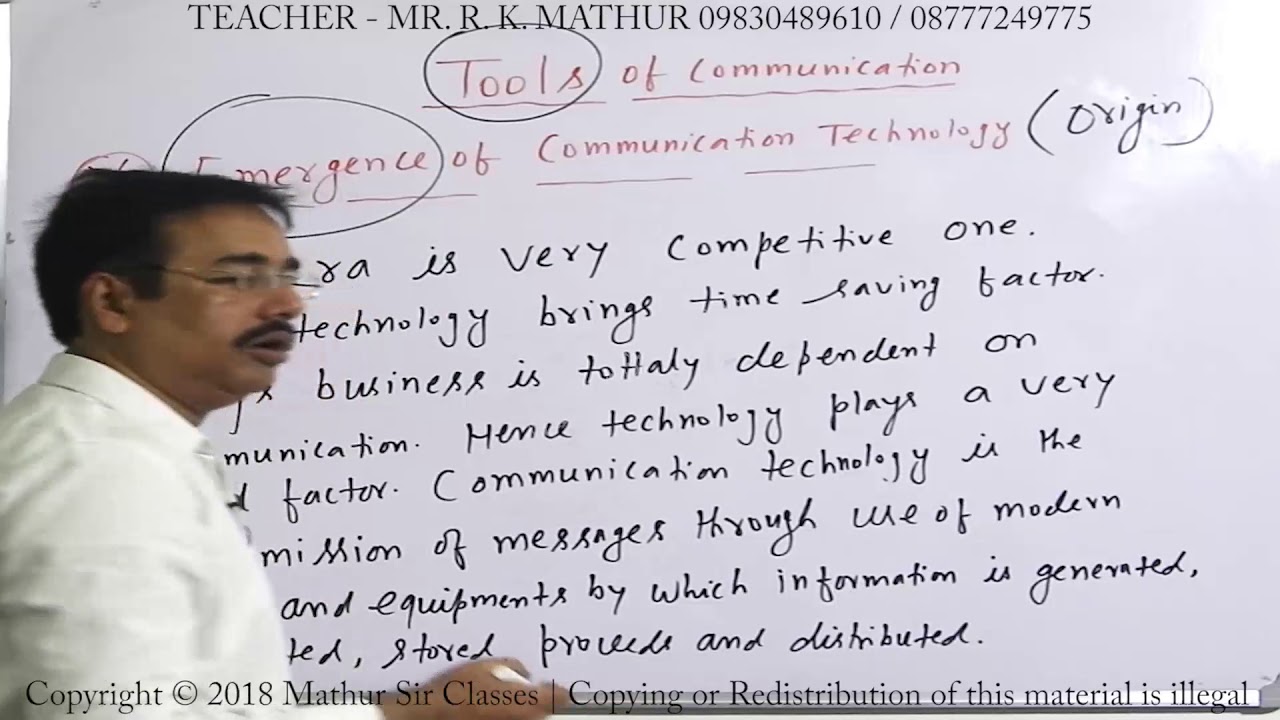 TEACHER - MR. R. K. MATHUR 09830489610 / 08777249775
Tools of Communication
Emergence of Communication Technology (Origin)
ra is very competitive one.
technology brings time saving factor.
business is tottaly dependent on
munication. Hence technology plays a very
factor. Communication technology is the
mission of messages through use of modern
and equipments by which information is generated,
ted, stored proceeds and distributed.
Copyright © 2018 Mathur Sir Classes | Copying or Redistribution of this material is illegal